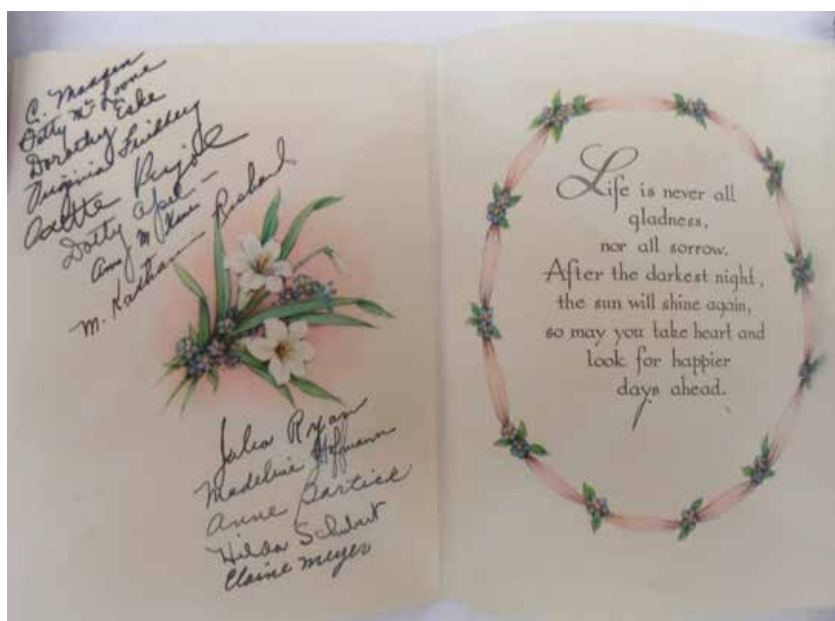 C. Madsen
Dotty McLoone
Dorothy Eske
Virginia Lindberg
Odette Pujol
Dotty Apel
Amy M. Kane
M. Katharine Richard
Julia Ryan
Madeline Hoffmann
Anne Bartick
Hilda Schubert
Elaine Meyer
Life is never all
gladness,
nor all sorrow.
After the darkest night,
the sun will shine again,
so may you take heart and
look for happier
days ahead.